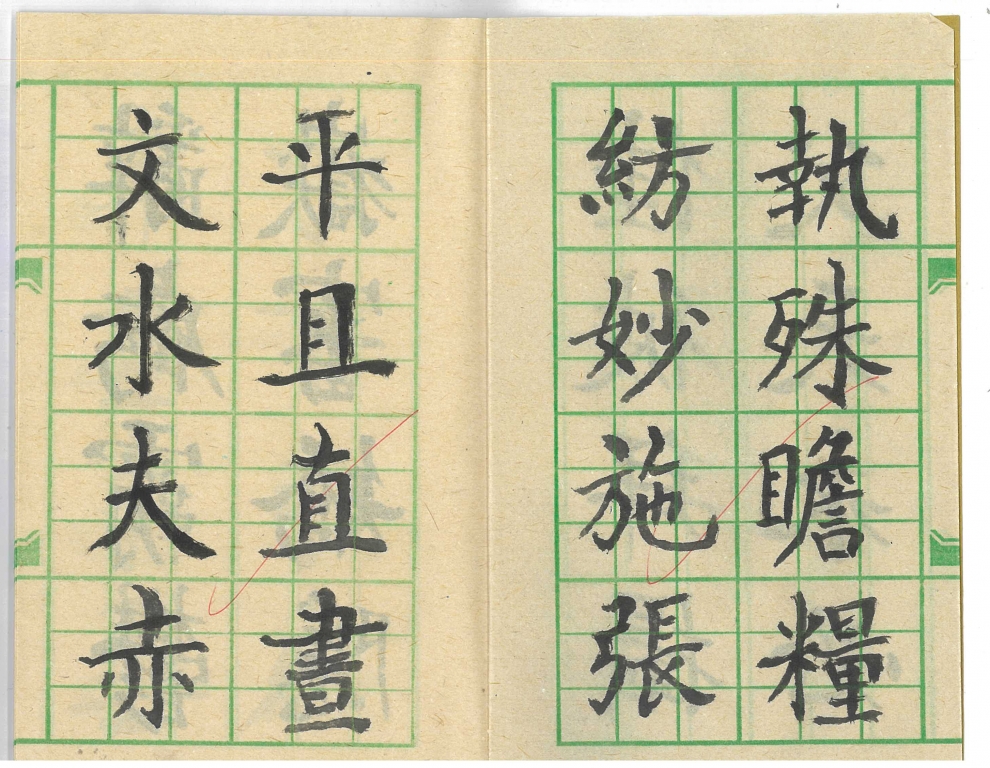 執殊瞻糧
紡妙施張
平且直晝
文水夫赤